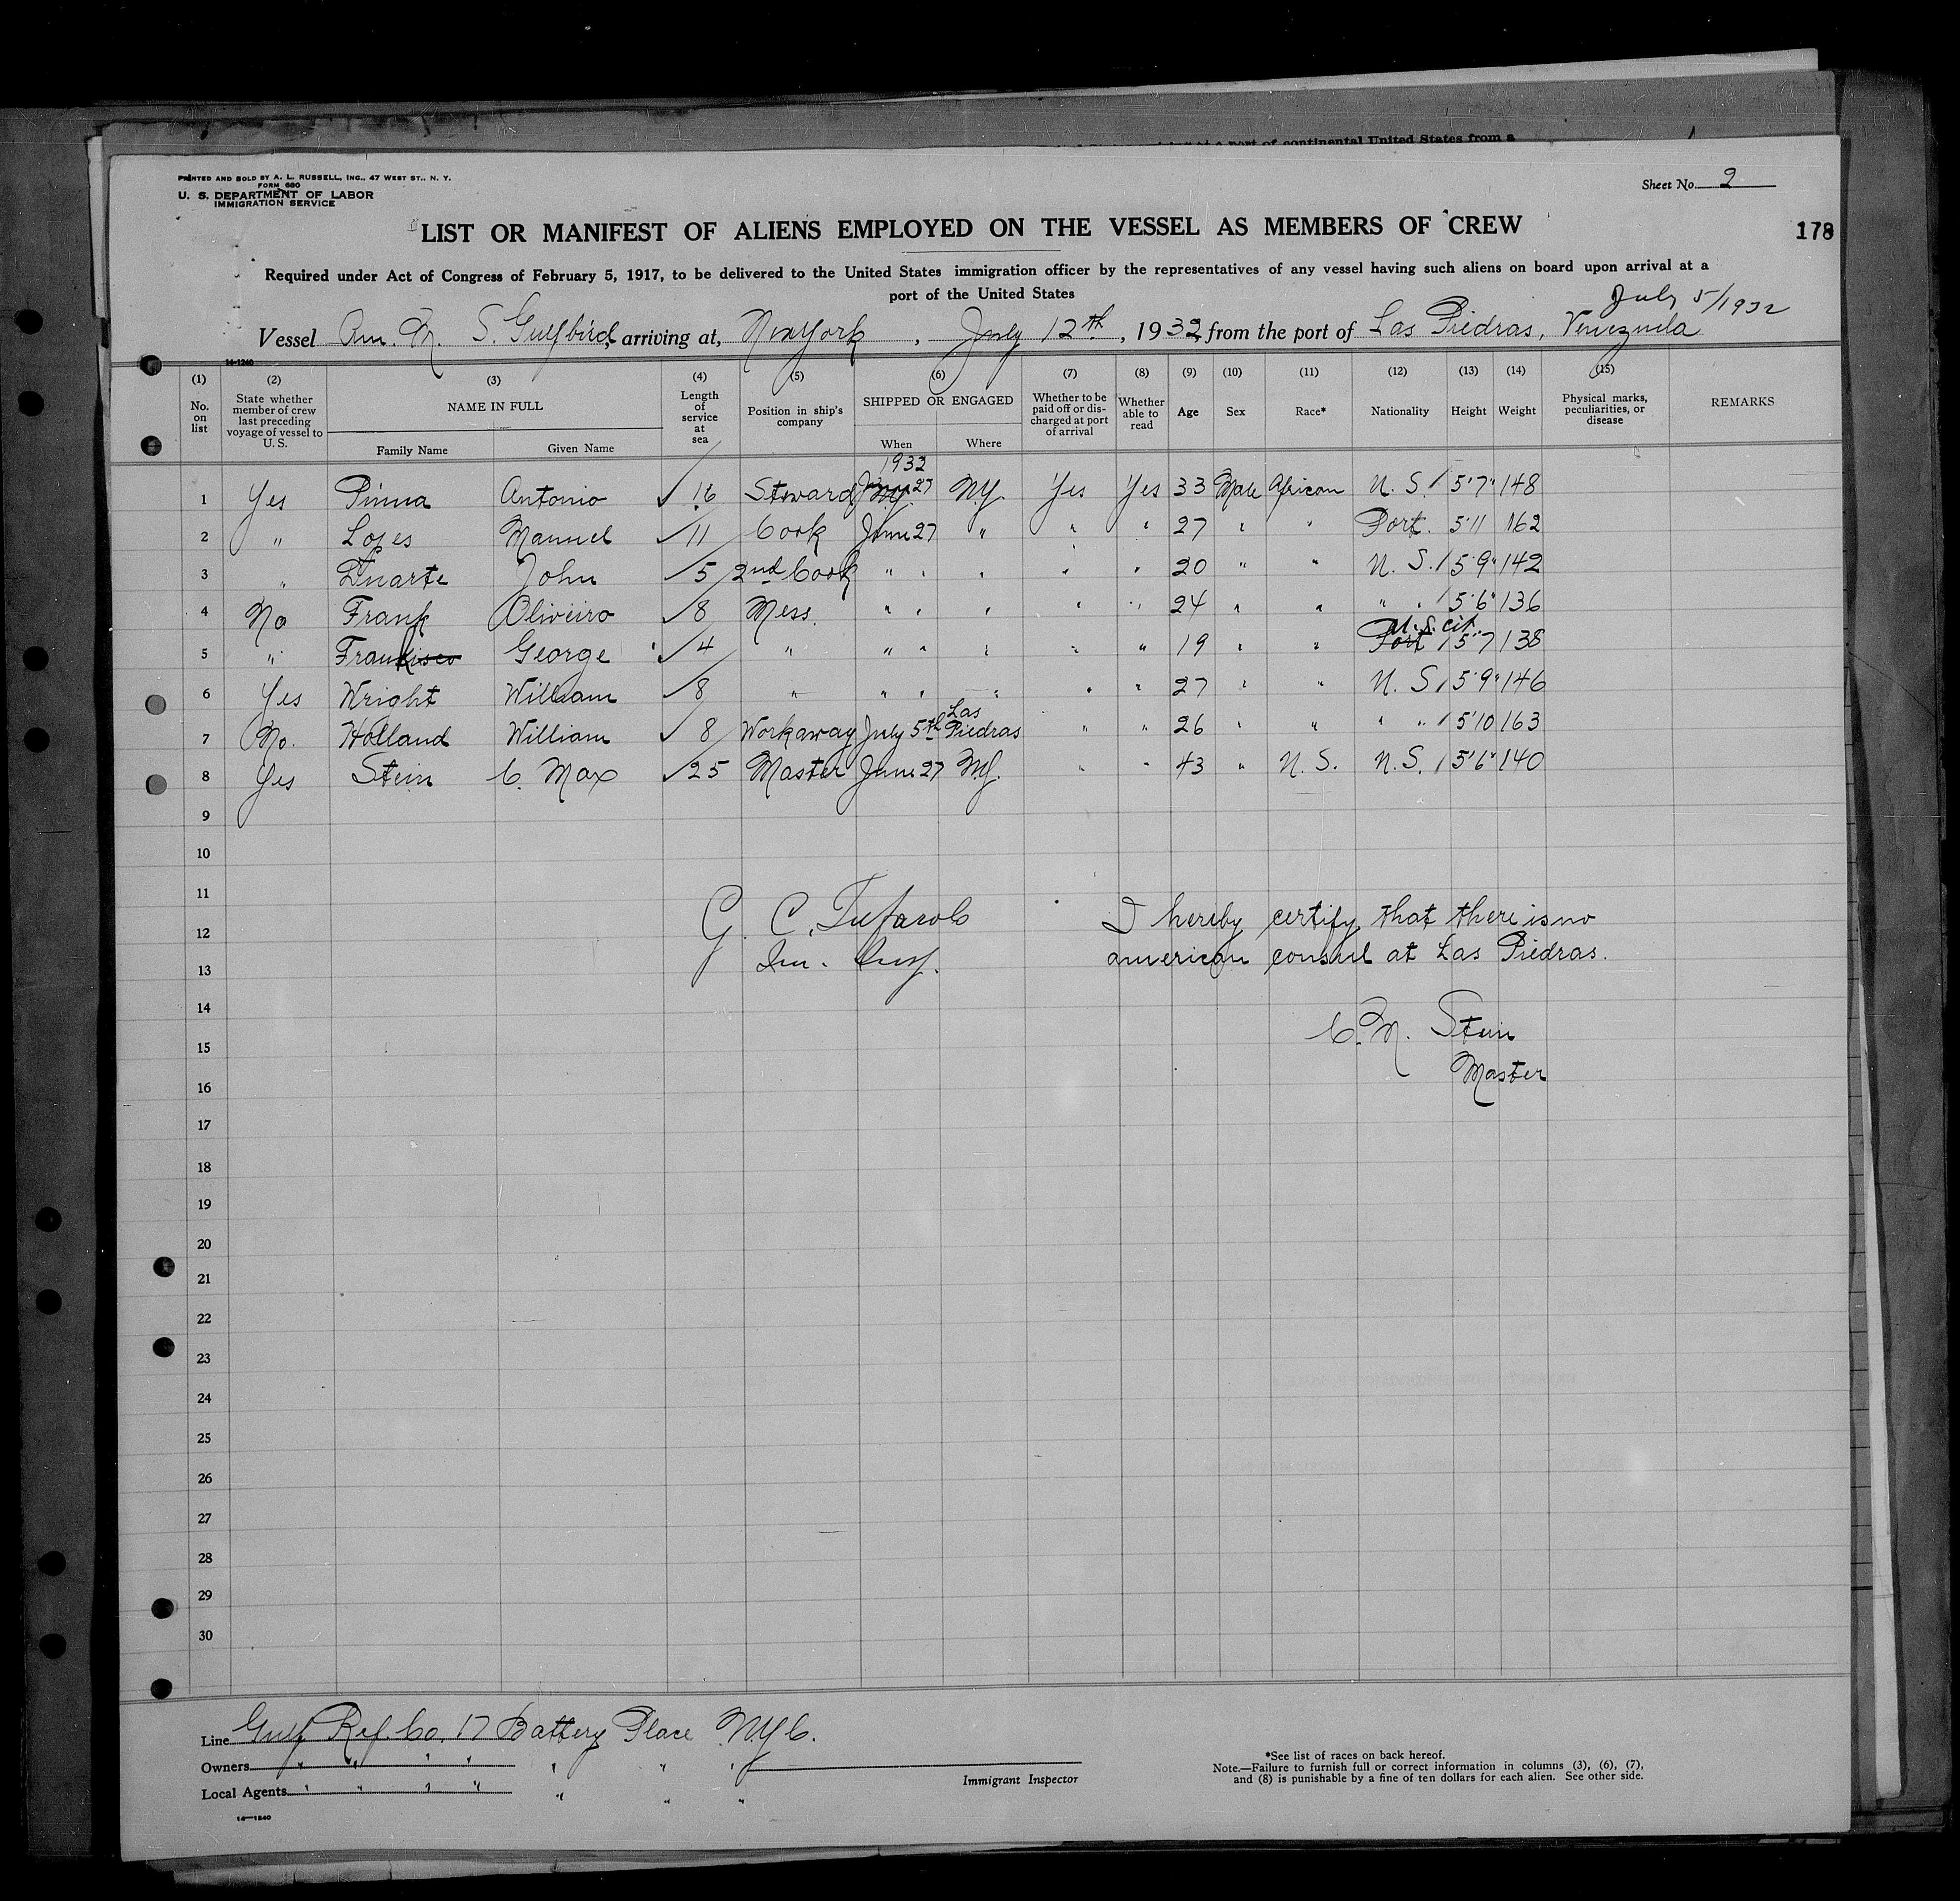 d States arriving at a port of continental United States from a
PRINTED AND SOLD BY A. L. RUSSELL, INC., 47 WEST ST., N. Y.
FORM 680
U. S. DEPARTMENT OF LABOR
IMMIGRATION SERVICE
Sheet No. 2
LIST OR MANIFEST OF ALIENS EMPLOYED ON THE VESSEL AS MEMBERS OF CREW
178
Required under Act of Congress of February 5, 1917, to be delivered to the United States immigration officer by the representatives of any vessel having such aliens on board upon arrival at a
port of the United States
July 5/1932
Vessel Am. M. S. Gulfbird, arriving at, New York, July 12th, 1932, from the port of Las Piedras, Venezuela
14-1240
(1) (2) (3) (4) (5) (6) (7) (8) (9) (10) (11) (12) (13) (14) (15)
No. on list State whether member of crew last preceding voyage of vessel to U. S. NAME IN FULL Length of service at sea Position in ship's company SHIPPED OR ENGAGED Whether to be paid off or discharged at port of arrival Whether able to read Age Sex Race* Nationality Height Weight Physical marks, peculiarities, or disease REMARKS
Family Name Given Name When Where
1932
1 Yes Pinna Antonio ✓ 16 Steward June 27 N.Y. Yes Yes 33 Male African U. S. / 5'7" 148
2 " Lopes Manuel ✓ 11 Cook June 27 " " " 27 " " Port. 5'11 162
3 " Duarte John ✓ 5 2nd Cook " " " " " 20 " " U. S. / 5'9" 142
4 No Frank Oliveiro ✓ 8 Mess. " " " " " 24 " " " " / 5'6" 136
U. S. Cit.
5 " Francisco George ✓ 4 " " " " " " 19 " " Port / 5'7 138
6 Yes Wright William ✓ 8 " " " " " " 27 " " U. S. / 5'9" 146
7 No. Holland William ✓ 8 Workaway July 5th Las Piedras " " 26 " " " " / 5'10 163
8 Yes Stein C. Max ✓ 25 Master June 27 N.Y. " " 43 " U. S. U. S. / 5'6" 140
9
10
11
12 G. C. I hereby certify that there is no
13 american consul at Las Piedras.
14
15 C. M. Stein
16 Master
17
18
19
20
21
22
23
24
25
26
27
28
29
30
Line Gulf Ref. Co. 17 Battery Place N.Y.C.
Owners " " " " " " "
Local Agents " " " " " " "
Immigrant Inspector
*See list of races on back hereof.
Note.—Failure to furnish full or correct information in columns (3), (6), (7),
and (8) is punishable by a fine of ten dollars for each alien. See other side.
14-1240